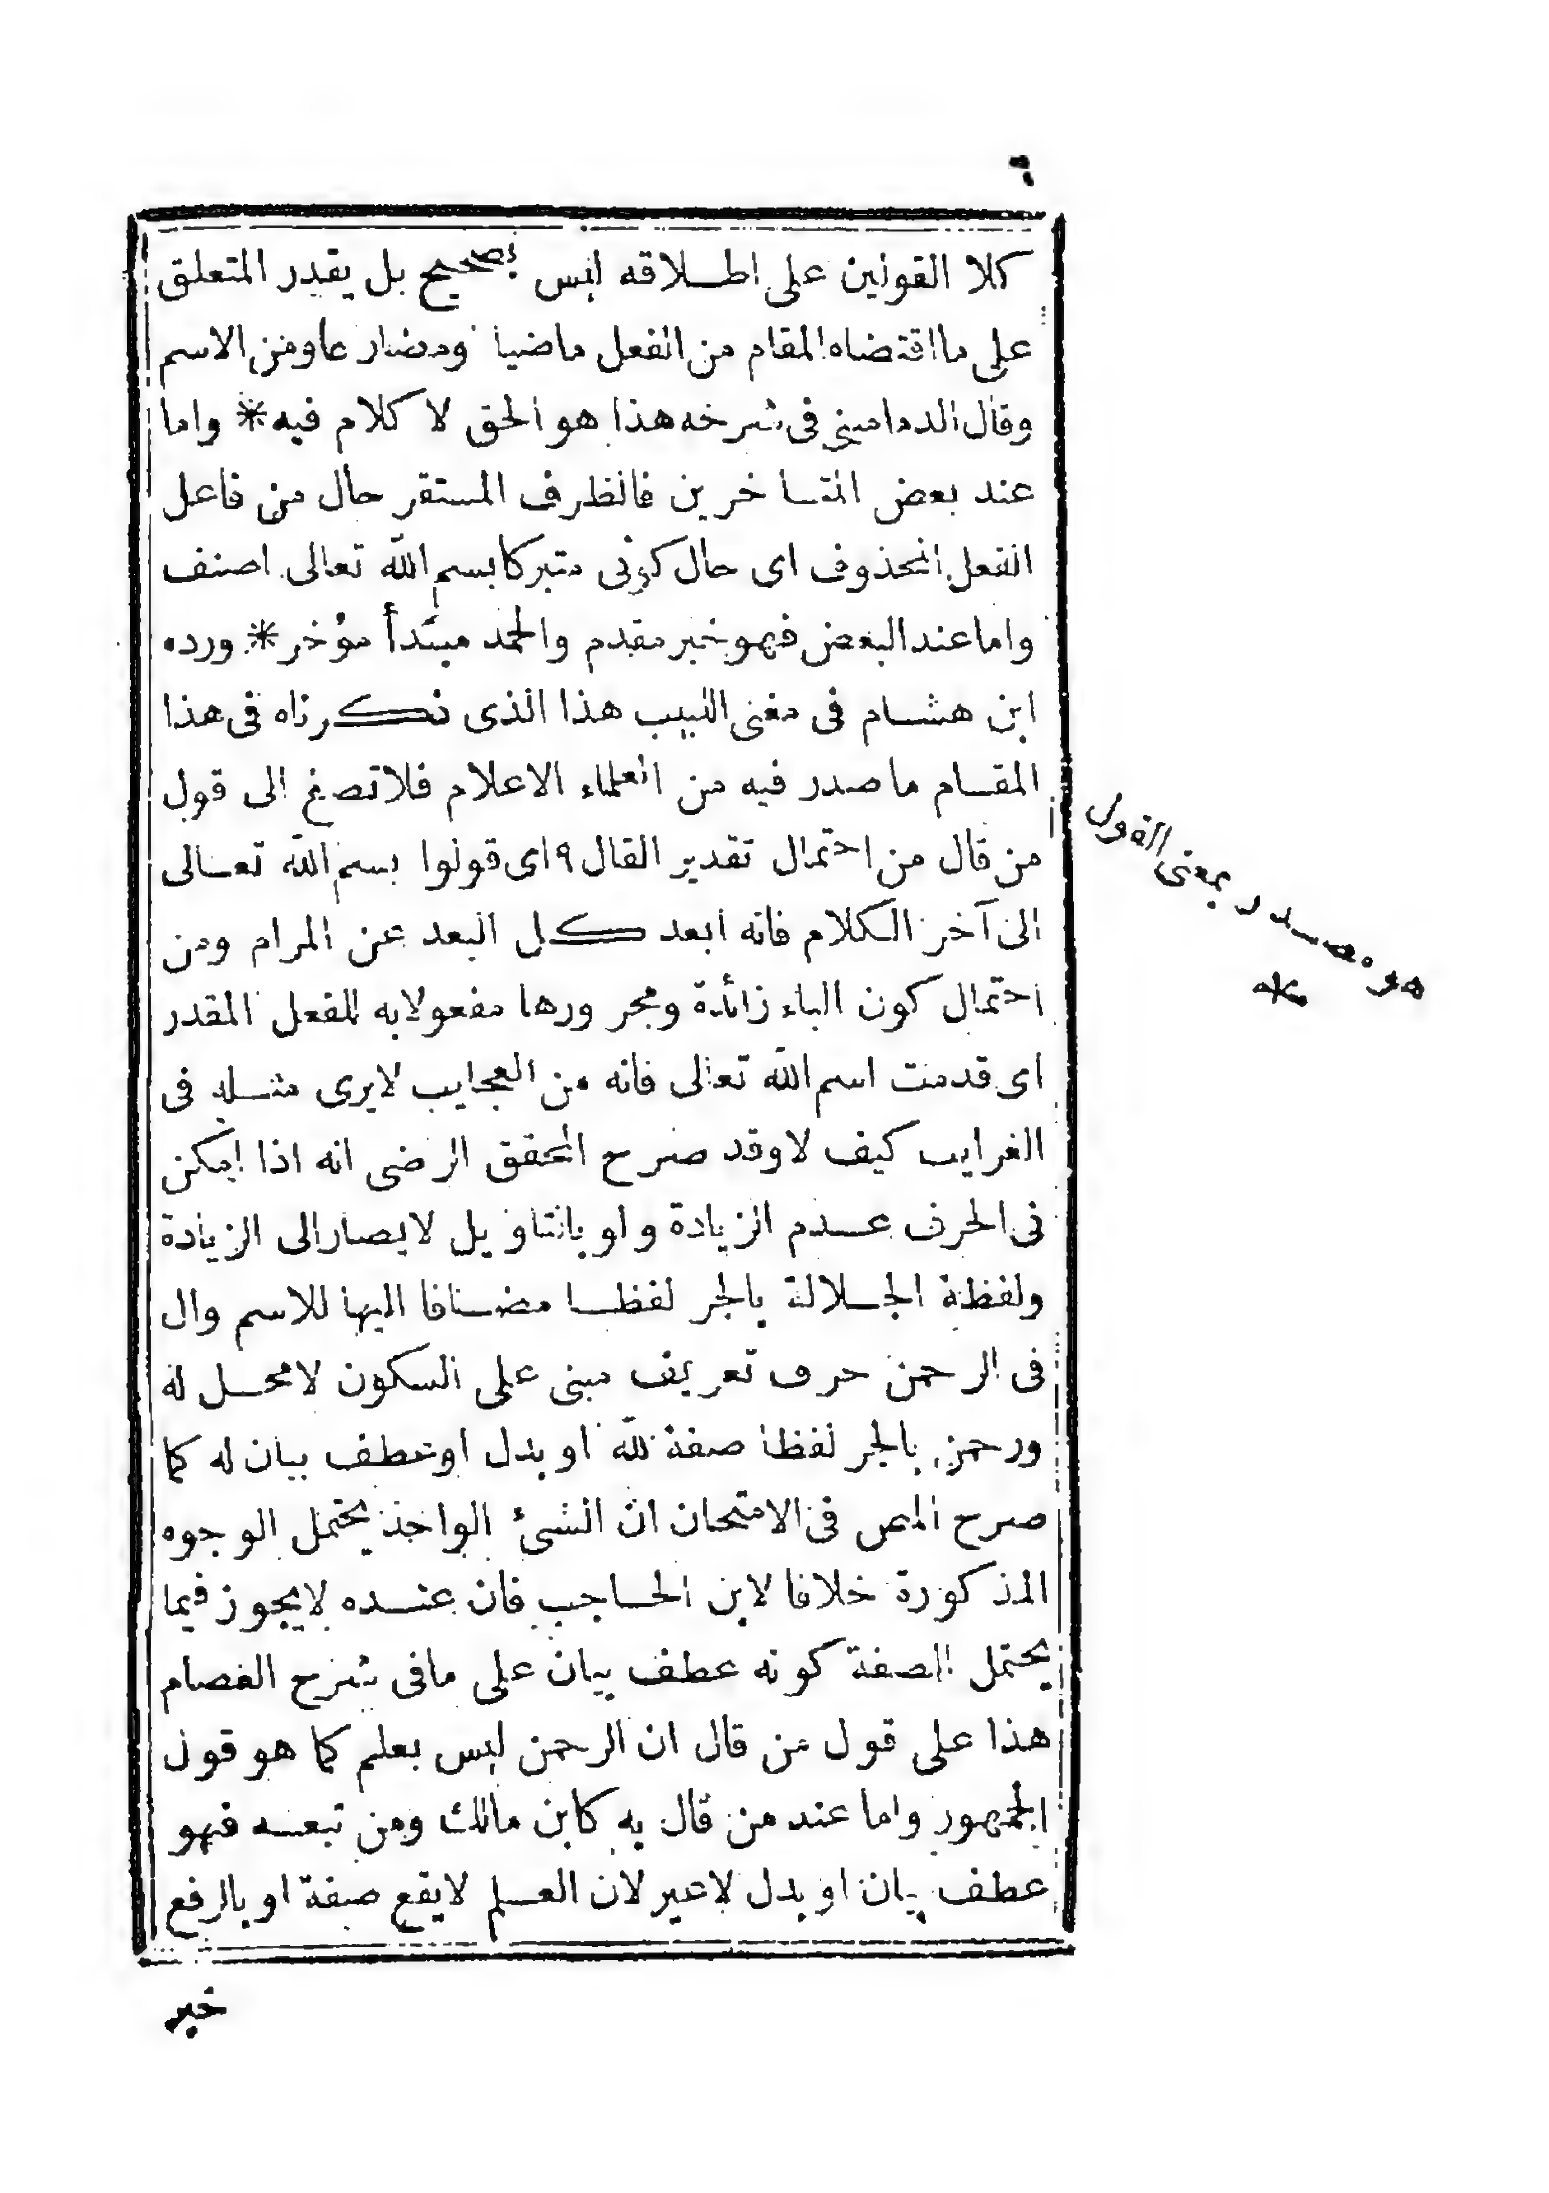 ٦
كلا القولين على اطلاقه ليس بصحيح بل يقدر المتعلق
على ما اقتضاه المقام من الفعل ماضيا ومضارعا ومن الاسم
وقال الدماميني فى شرحه هذا هو الحق لا كلام فيه * واما
عند بعض المتأخرين فالظرف المستقر حال من فاعل
الفعل المحذوف اى حال كونى متبركا بسم الله تعالى اصنف
واما عند البعض فهو خبر مقدم والحمد مبتدأ مؤخر * ورده
ابن هشام فى مغنى اللبيب هذا الذى ذكرناه فى هذا
المقام ما صدر فيه من العلماء الاعلام فلا تصغ الى قول
من قال من احتمال تقدير القال ٩ اى قولوا بسم الله تعالى
الى آخر الكلام فانه ابعد كل البعد عن المرام ومن
احتمال كون الباء زائدة ومجرورها مفعولا به للفعل المقدر
اى قدمت اسم الله تعالى فانه من العجايب لا يرى مثله فى
الغرايب كيف لا وقد صرح المحقق الرضى انه اذا امكن
فى الحرف عدم الزيادة ولو بالتاويل لا يصار الى الزيادة
ولفظة الجلالة بالجر لفظا مضافا اليها للاسم وال
فى الرحمن حرف تعريف مبنى على السكون لا محل له
ورحمن بالجر لفظا صفة لله او بدل او عطف بيان له كما
صرح المص فى الامتحان ان الشئ الواحد يحتمل الوجوه
المذكورة خلافا لابن الحاجب فان عنده لا يجوز فيما
يحتمل الصفة كونه عطف بيان على ما فى شرح العصام
هذا على قول من قال ان الرحمن ليس بعلم كما هو قول
الجمهور واما عند من قال به كابن مالك ومن تبعه فهو
عطف بيان او بدل لا غير لان العلم لا يقع صفة او بالرفع
خبر
هو مصدر بمعنى القول
منه